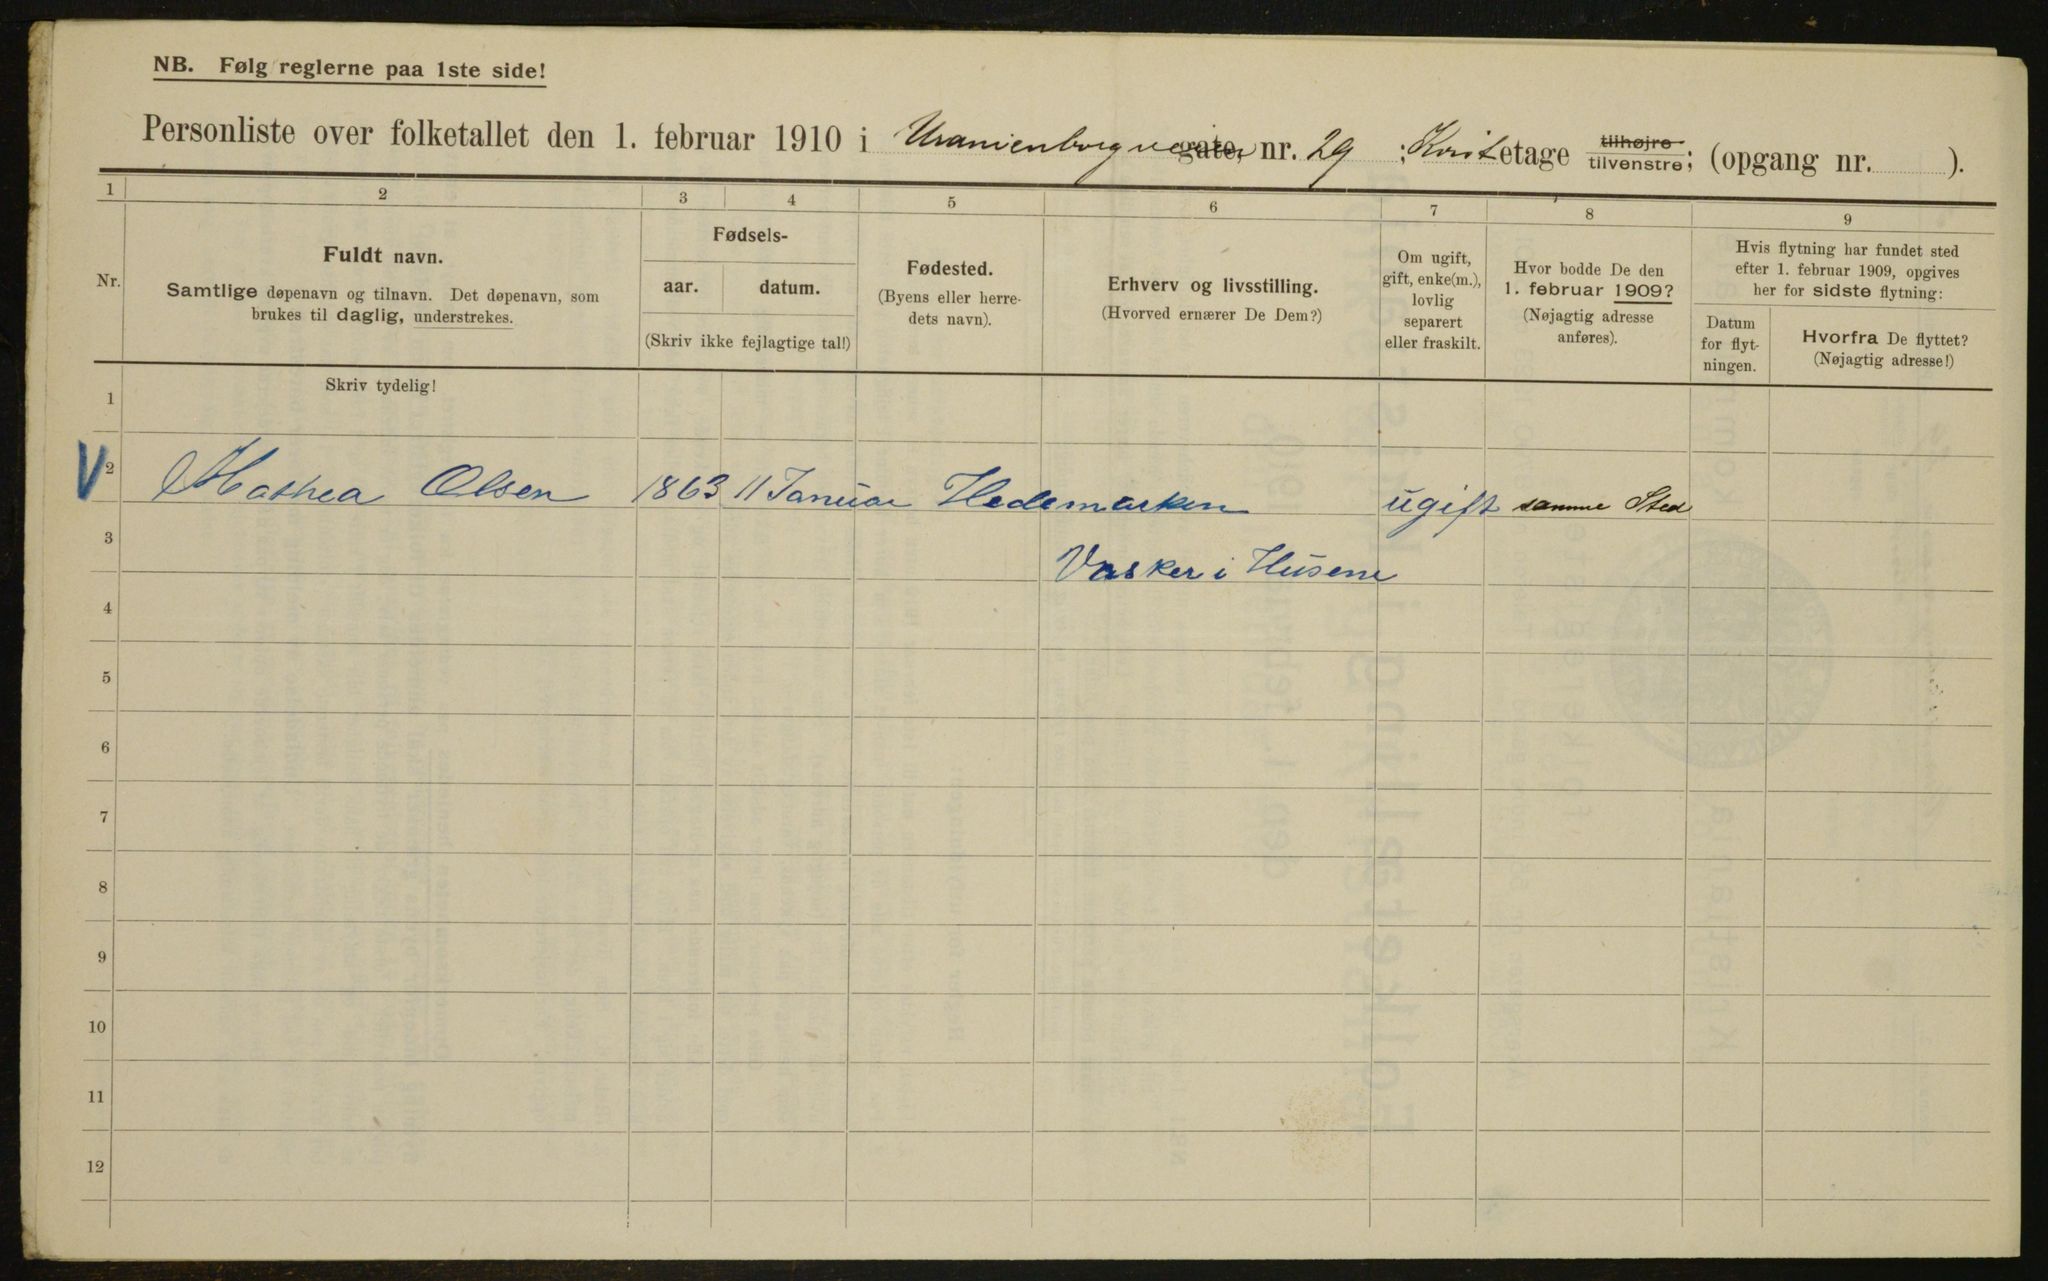 NB. Følg reglerne paa 1ste side!
Personliste over folketallet den 1. februar 1910 i Uranienborgveien gate, nr. 29 ; Kvist etage tilhøjre tilvenstre; (opgang nr. ).
1 2 3 4 5 6 7 8 9
Nr.
Fuldt navn.
Samtlige døpenavn og tilnavn. Det døpenavn, som
brukes til daglig, understrekes.
Skriv tydelig!
Fødsels-
aar. datum.
(Skriv ikke fejlagtige tal!)
Fødested.
(Byens eller herre-
dets navn).
Erhverv og livsstilling.
(Hvorved ernærer De Dem?)
Om ugift,
gift, enke(m.),
lovlig
separert
eller fraskilt.
Hvor bodde De den
1. februar 1909?
(Nøjagtig adresse
anføres).
Hvis flytning har fundet sted
efter 1. februar 1909, opgives
her for sidste flytning:
Datum
for flyt-
ningen.
Hvorfra De flyttet?
(Nøjagtig adresse!)
1
V 2 Mathea Olsen 1863 11 Januar Hedemarken ugift samme Sted
3 Vasker i Husene
4
5
6
7
8
9
10
11
12